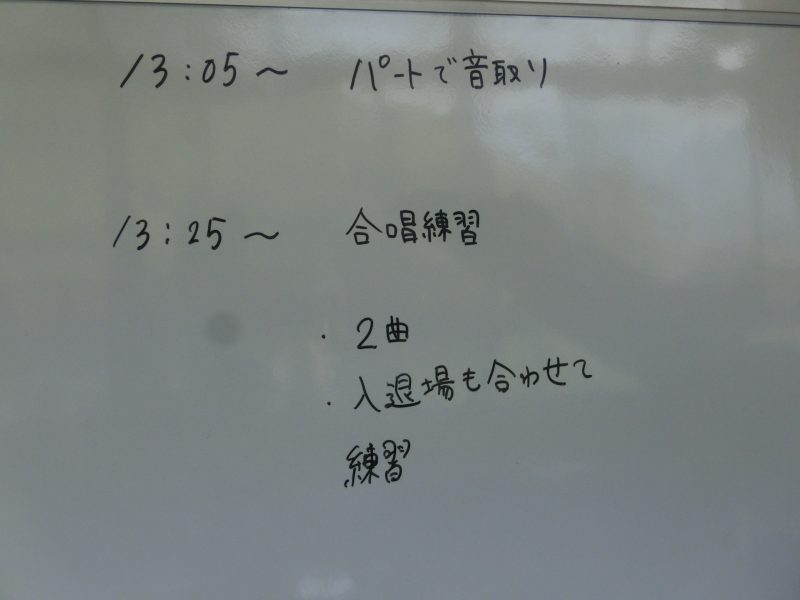 13:05～ パートで音取り
13:25～ 合唱練習
・2曲
・入退場も合わせて
練習